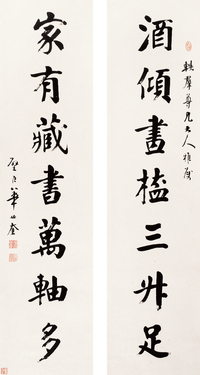 軼羣尊兄大人雅屬
酒傾畫榼三升足
家有藏書萬軸多
華世奎